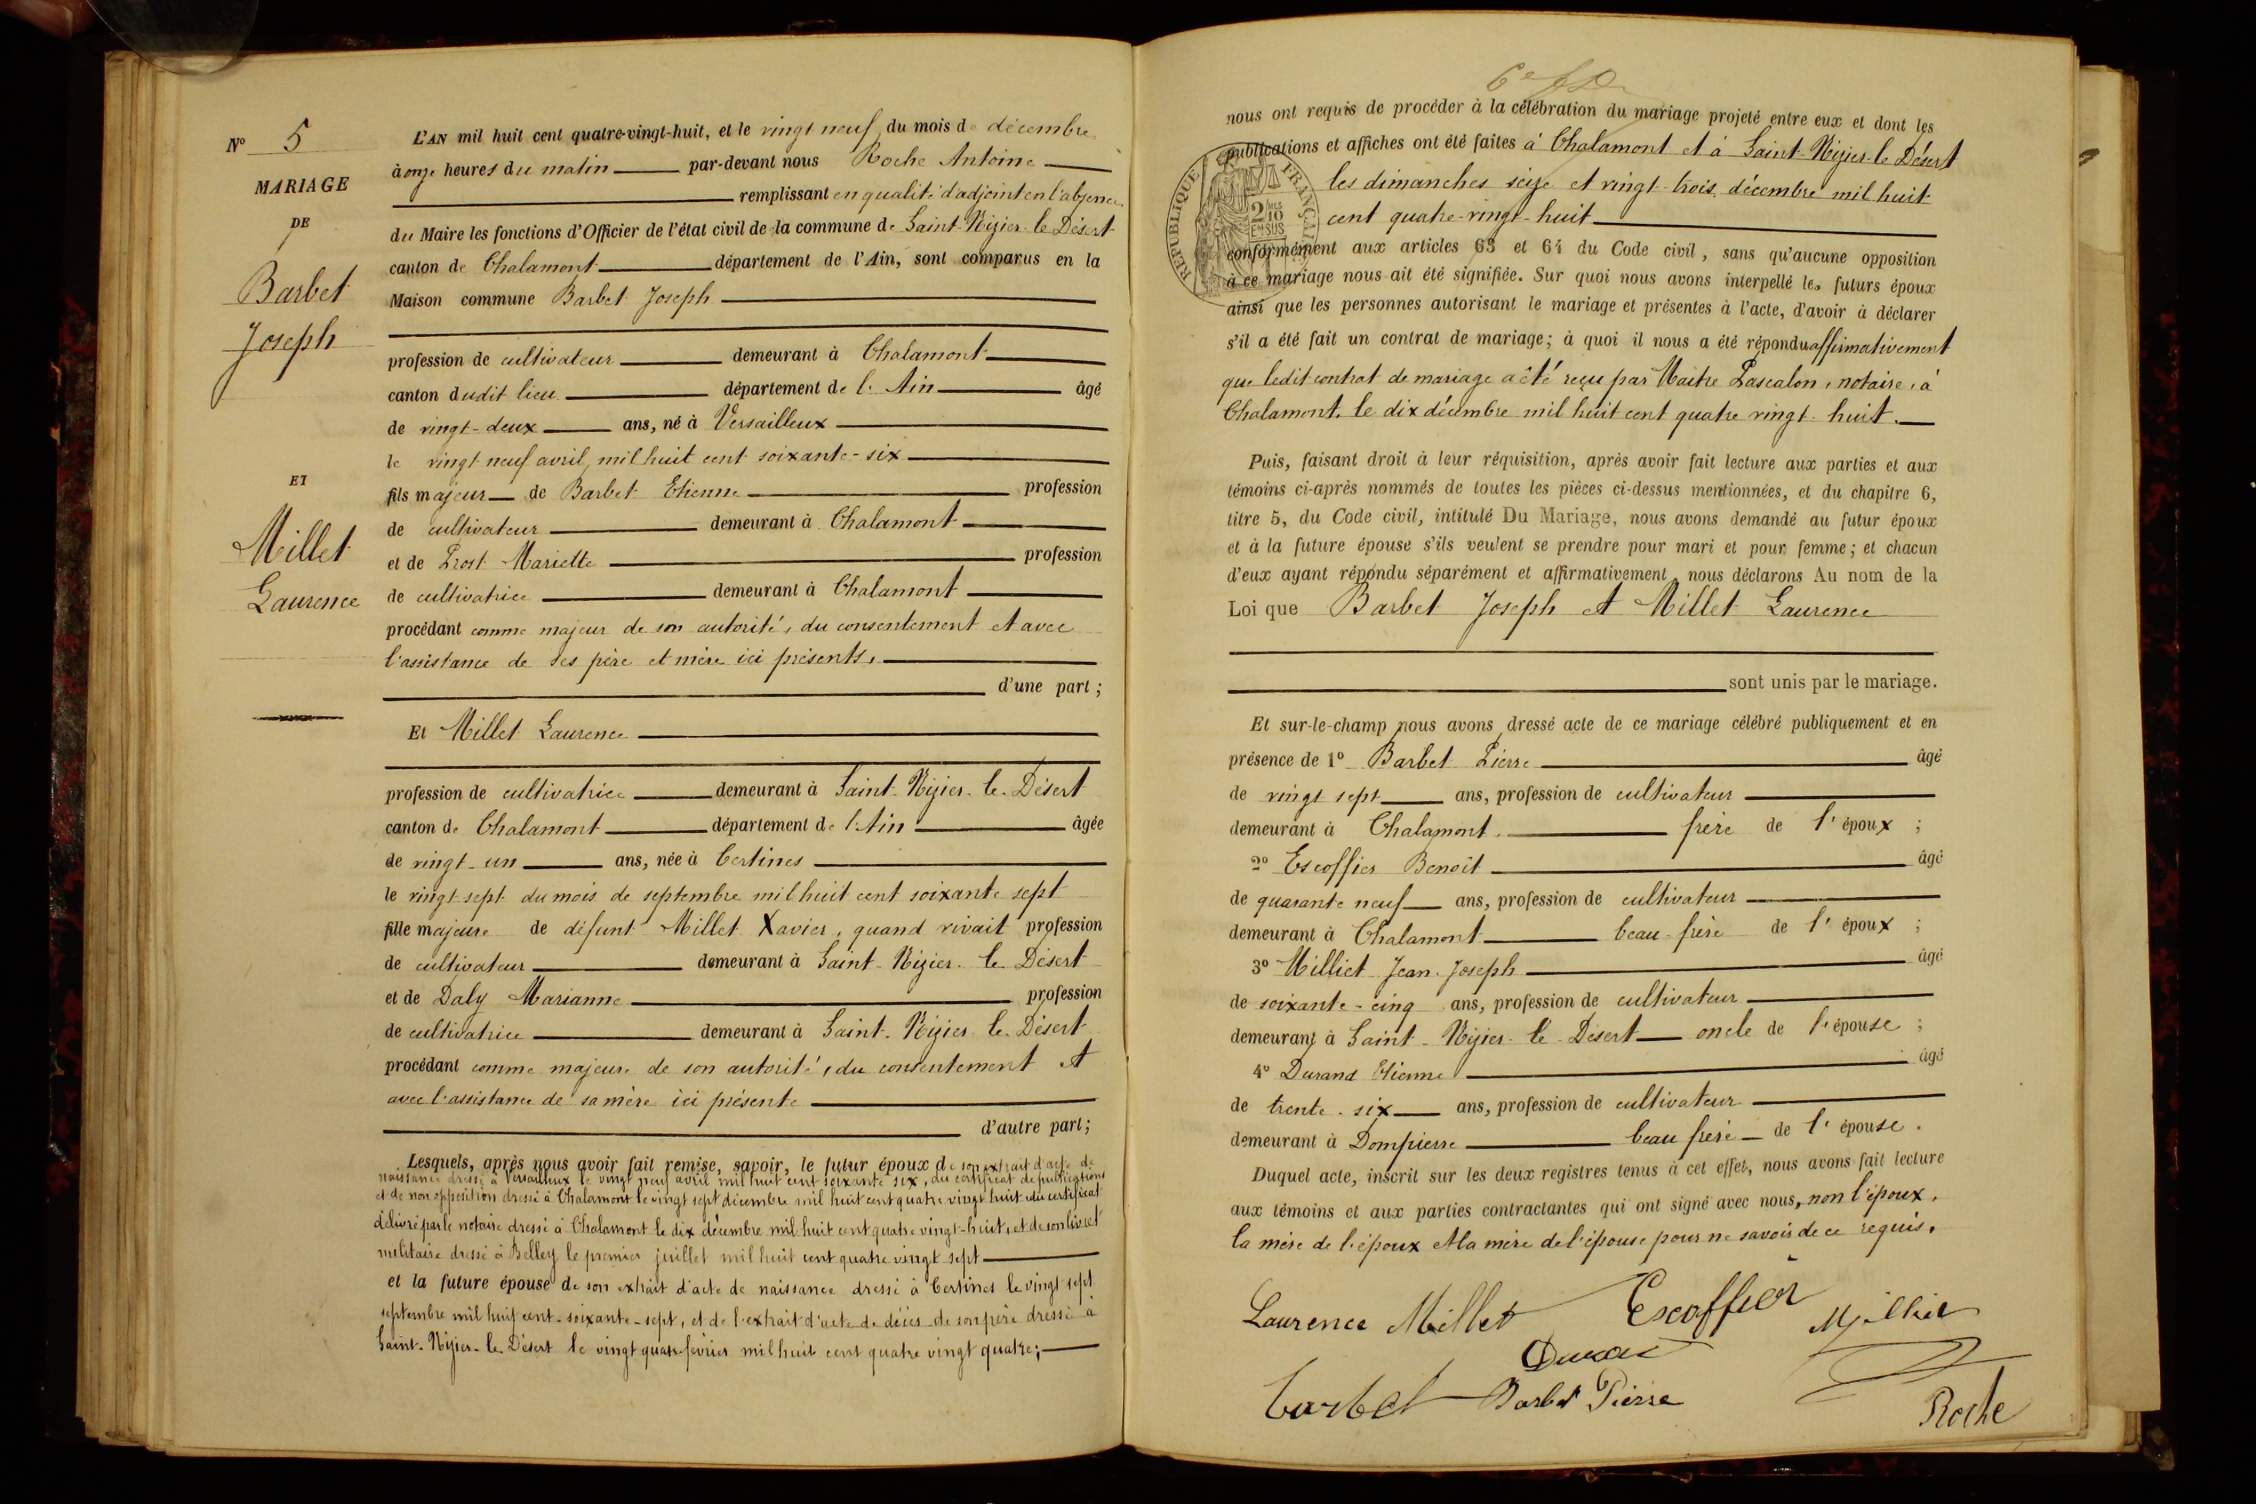 N° 5
MARIAGE
DE
Barbet
Joseph
ET
Millet
Laurence
L'AN mil huit cent quatre-vingt-huit, et le vingt neuf du mois de décembre
à onze heures du matin par-devant nous Roche Antoine
remplissant en qualité d'adjoint en l'absence
du Maire les fonctions d'Officier de l'état civil de la commune de Saint-Nizier-le-Désert
canton de Chalamont département de l'Ain, sont comparus en la
Maison commune Barbet Joseph
profession de cultivateur demeurant à Chalamont
canton dudit lieu département de l'Ain âgé
de vingt-deux ans, né à Versailleux
le vingt neuf avril mil huit cent soixante-six
fils majeur de Barbet Etienne profession
de cultivateur demeurant à Chalamont
et de Prost Mariette profession
de cultivatrice demeurant à Chalamont
procédant comme majeur de son autorité, du consentement et avec
l'assistance de ses père et mère ici présents,
d'une part ;
Et Millet Laurence
profession de cultivatrice demeurant à Saint-Nizier-le-Désert
canton de Chalamont département de l'Ain âgée
de vingt-un ans, née à Certines
le vingt-sept du mois de septembre mil huit cent soixante sept
fille majeure de défunt Millet Xavier, quand vivait profession
de cultivateur demeurant à Saint-Nizier-le Désert
et de Daly Marianne profession
de cultivatrice demeurant à Saint-Nizier-le-Désert
procédant comme majeure de son autorité, du consentement et
avec l'assistance de sa mère ici présente
d'autre part ;
Lesquels, après nous avoir fait remise, savoir, le futur époux de son extrait d'acte de
naissance dressé à Versailleux le vingt neuf avril mil huit cent soixante six, du certificat de publications
et de non opposition dressé à Chalamont le vingt sept décembre mil huit cent quatre vingt huit du certificat
délivré par le notaire dressé à Chalamont le dix décembre mil huit cent quatre vingt-huit, et de son livret
militaire dressé à Belley le premier juillet mil huit cent quatre vingt sept
et la future épouse de son extrait d'acte de naissance dressé à Certines le vingt sept
septembre mil huit cent-soixante-sept, et de l'extrait d'acte de décès de son père dressé à
Saint-Nizier-le-Désert le vingt quatre février mil huit cent quatre vingt quatre ;
nous ont requis de procéder à la célébration du mariage projeté entre eux et dont les
publications et affiches ont été faites à Chalamont et à Saint-Nizier-le Désert
les dimanches seize et vingt-trois décembre mil huit
cent quatre-vingt-huit
REPUBLIQUE FRANÇAISE
2/10 EN SUS
conformément aux articles 63 et 64 du Code civil, sans qu'aucune opposition
à ce mariage nous ait été signifiée. Sur quoi nous avons interpellé les futurs époux
ainsi que les personnes autorisant le mariage et présentes à l'acte, d'avoir à déclarer
s'il a été fait un contrat de mariage ; à quoi il nous a été répondu affirmativement
que ledit contrat de mariage a été reçu par Maître Pascalon, notaire, à
Chalamont, le dix décembre mil huit cent quatre vingt-huit.
Puis, faisant droit à leur réquisition, après avoir fait lecture aux parties et aux
témoins ci-après nommés de toutes les pièces ci-dessus mentionnées, et du chapitre 6,
titre 5, du Code civil, intitulé Du Mariage, nous avons demandé au futur époux
et à la future épouse s'ils veulent se prendre pour mari et pour femme ; et chacun
d'eux ayant répondu séparément et affirmativement, nous déclarons Au nom de la
Loi que Barbet Joseph et Millet Laurence
sont unis par le mariage.
Et sur-le-champ nous avons dressé acte de ce mariage célébré publiquement et en
présence de 1° Barbet Pierre âgé
de vingt sept ans, profession de cultivateur
demeurant à Chalamont. frère de l'époux ;
2° Escoffier Benoît âgé
de quarante neuf ans, profession de cultivateur
demeurant à Chalamont beau-frère de l'époux ;
3° Milliet Jean-Joseph âgé
de soixante-cinq ans, profession de cultivateur
demeurant à Saint-Nizier-le-Désert oncle de l'épouse ;
4° Durand Etienne âgé
de trente-six ans, profession de cultivateur
demeurant à Dompierre beau frère de l'épouse.
Duquel acte, inscrit sur les deux registres tenus à cet effet, nous avons fait lecture
aux témoins et aux parties contractantes qui ont signé avec nous, non l'époux,
la mère de l'époux et la mère de l'épouse pour ne savoir de ce requis.
Laurence Millet Escoffier Milliet
Barbet Barbet Pierre
Roche